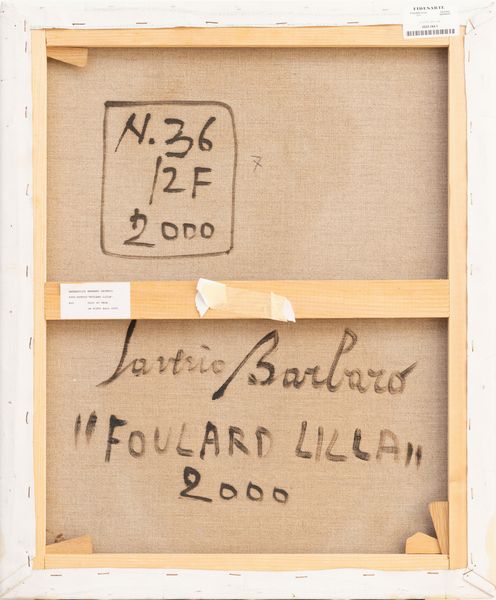 FIDESARTE
N. 36
12F
2000
7
Saverio Barbaro
"FOULARD LILLA"
2000